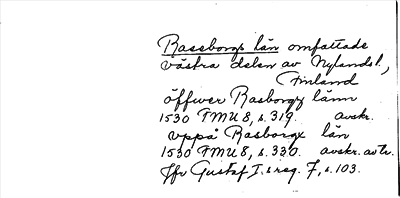 Raseborgs län omfattade
västra delen av Nylands l.,
Finland
öffwer Rasborgx länn
1530 FMU 8, s. 319. avskr.
vppå Rasborgx län
1530 FMU 8, s. 330. avskr. av tr.
Jfr Gustaf I:s reg. 7, s. 103.